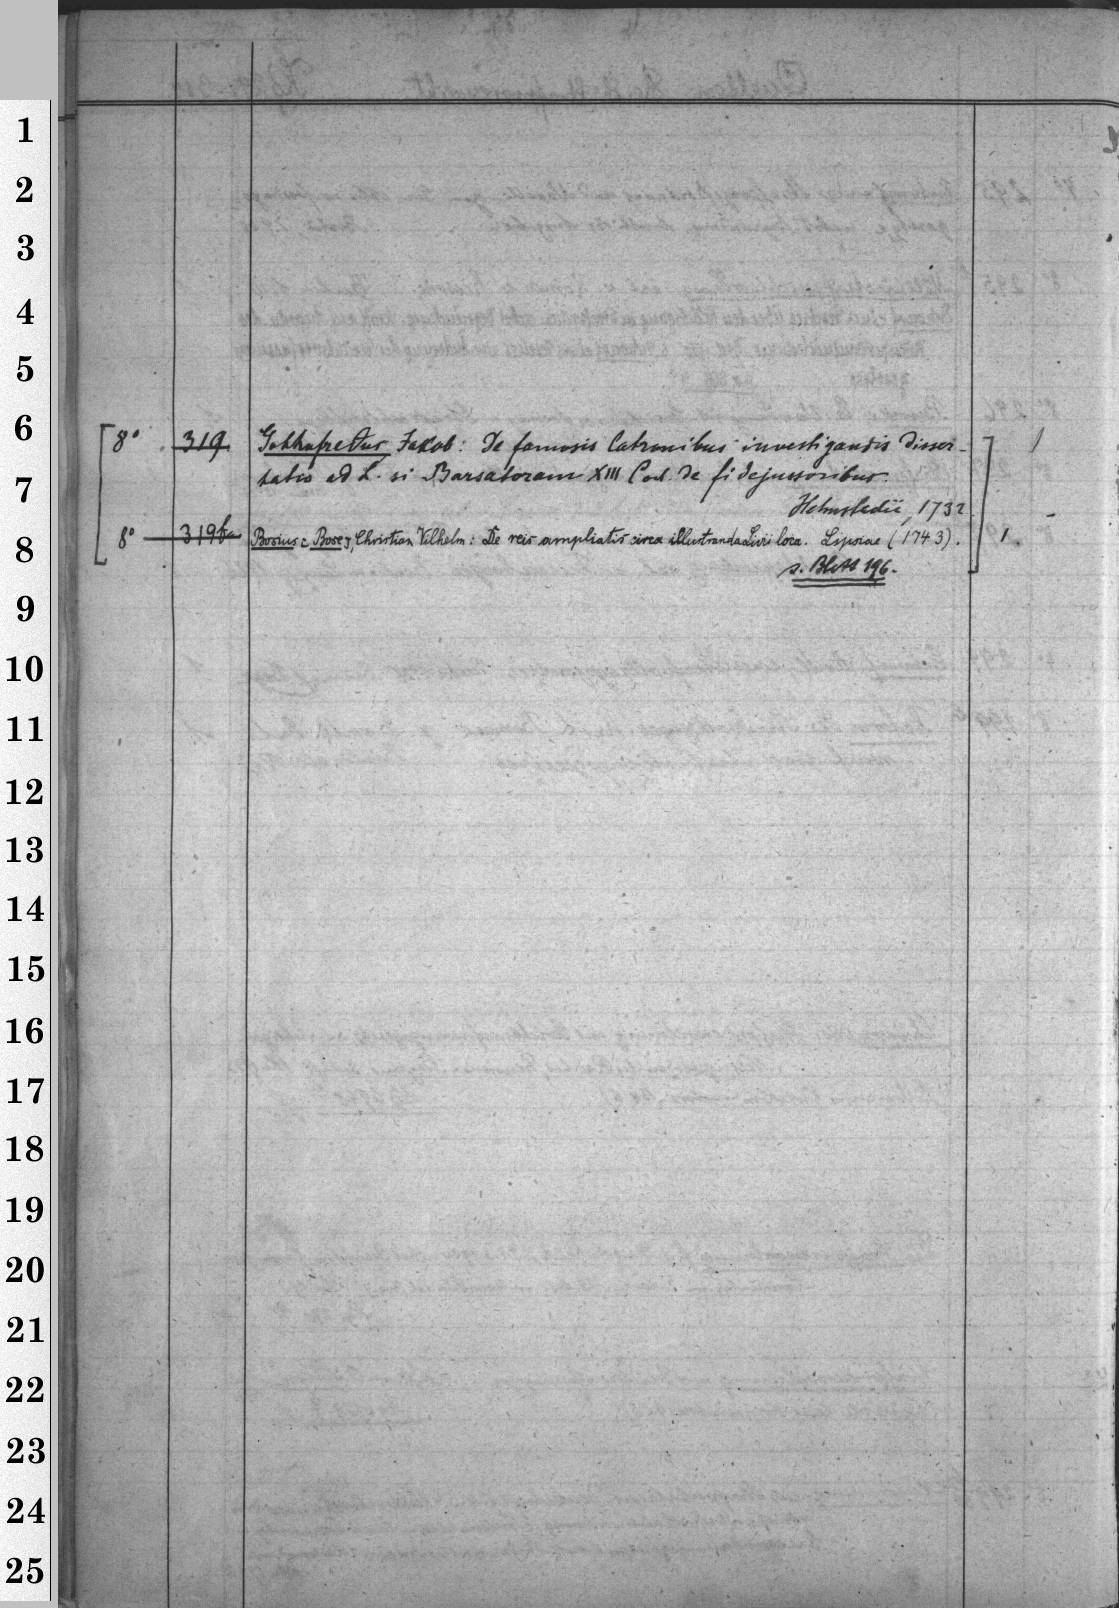 1
2
3
4
5
6
7
8
9
10
11
12
13
14
15
16
17
18
19
20
21
22
23
24
25
[8° 319 Jakob: De famosis latronibus investigandis Disser- ] 1
tatio ad L. si Barsatoram XIII Cod. de fidejussoribus.
Helmstedii, 1732
8° 319a Bosius [Bose], Christian Wilhelm: De reis ampliatis circa illustranda Livii loca. Lipsiae (1743). 1.
s. Blatt 196.